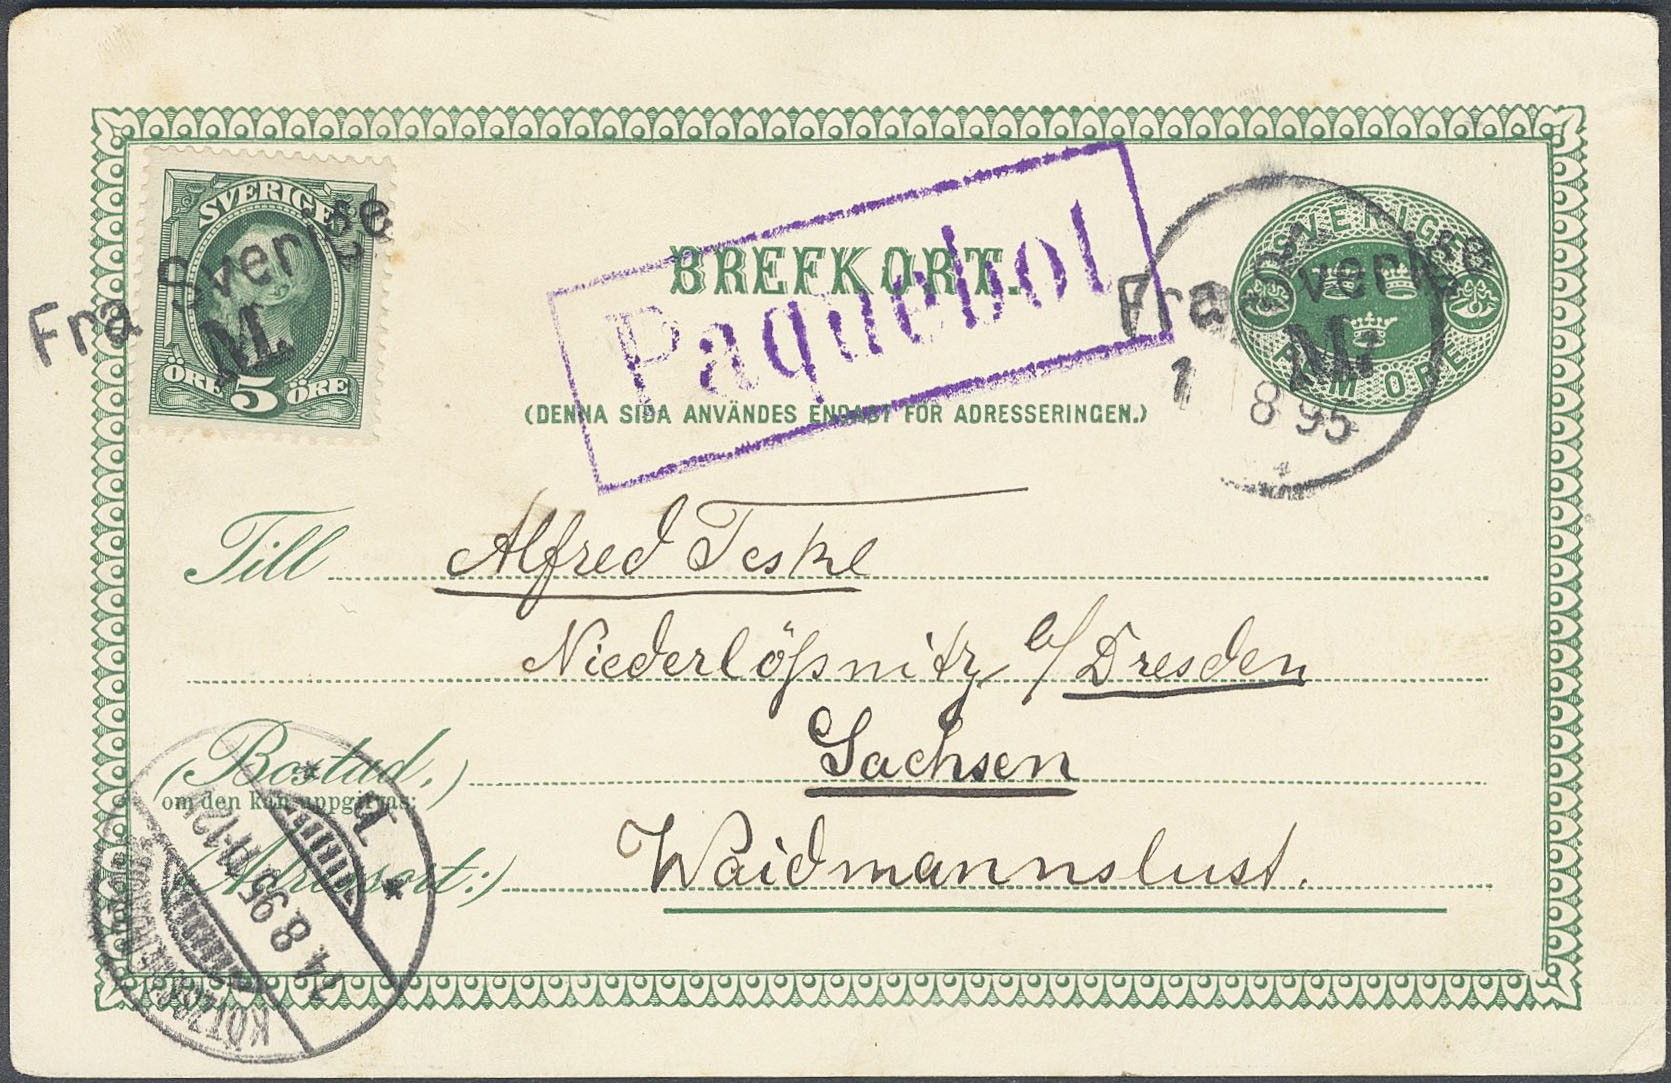 SVERIGE
ÖRE 5 ÖRE
Fra Sverige
M.
BREFKORT.
Paquebot
(DENNA SIDA ANVÄNDES ENDAST FÖR ADRESSERINGEN.)
SVERIGE
FEM ÖRE
Fra Sverige
M.
1 8 95
Till Alfred Teske
Niederlößnitz b/Dresden
(Bostad,) Sachsen
om den kan uppgifvas:
(Adressort:) Waidmannslust.
8.95